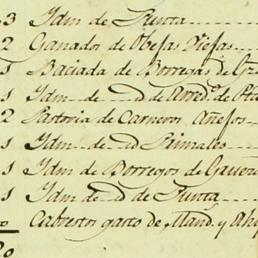 3 Idm de Punta
2 Ganados de Obejas Viejas
1 Baciada de Borregas de
1 Idm de
2 Pastoria de Carneros Añejos
1 Idm de Primales
1 Idm de Borregos de
1 Idm de Punta
Cabrestos gasto de Mand. y